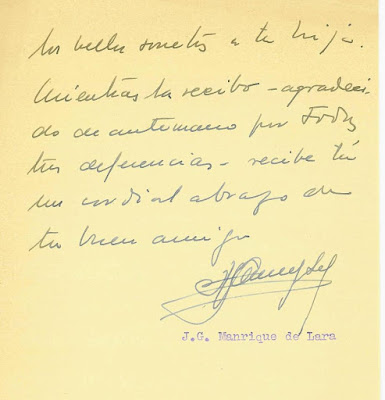 tus bellos sonetos a tu hijo.
Mientras la recibo - agradeci-
do de antemano por todas
tus deferencias - recibe tú
un cordial abrazo de
tu buen amigo
J.G. Manrique de Lara